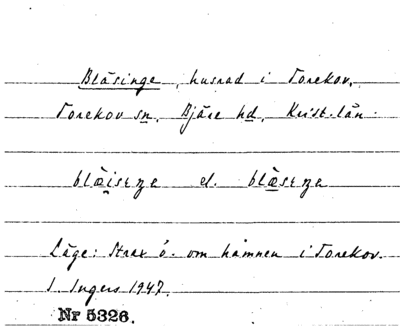 Blåsinge, husrad i Torekov.
Torekov sn, Bjäre hd, Krist. län.
blæisɛŋa el. blæsɛŋa
Läge: Strax ö. om hamnen i Torekov.
I. Ingers 1947.
Nr 5326.